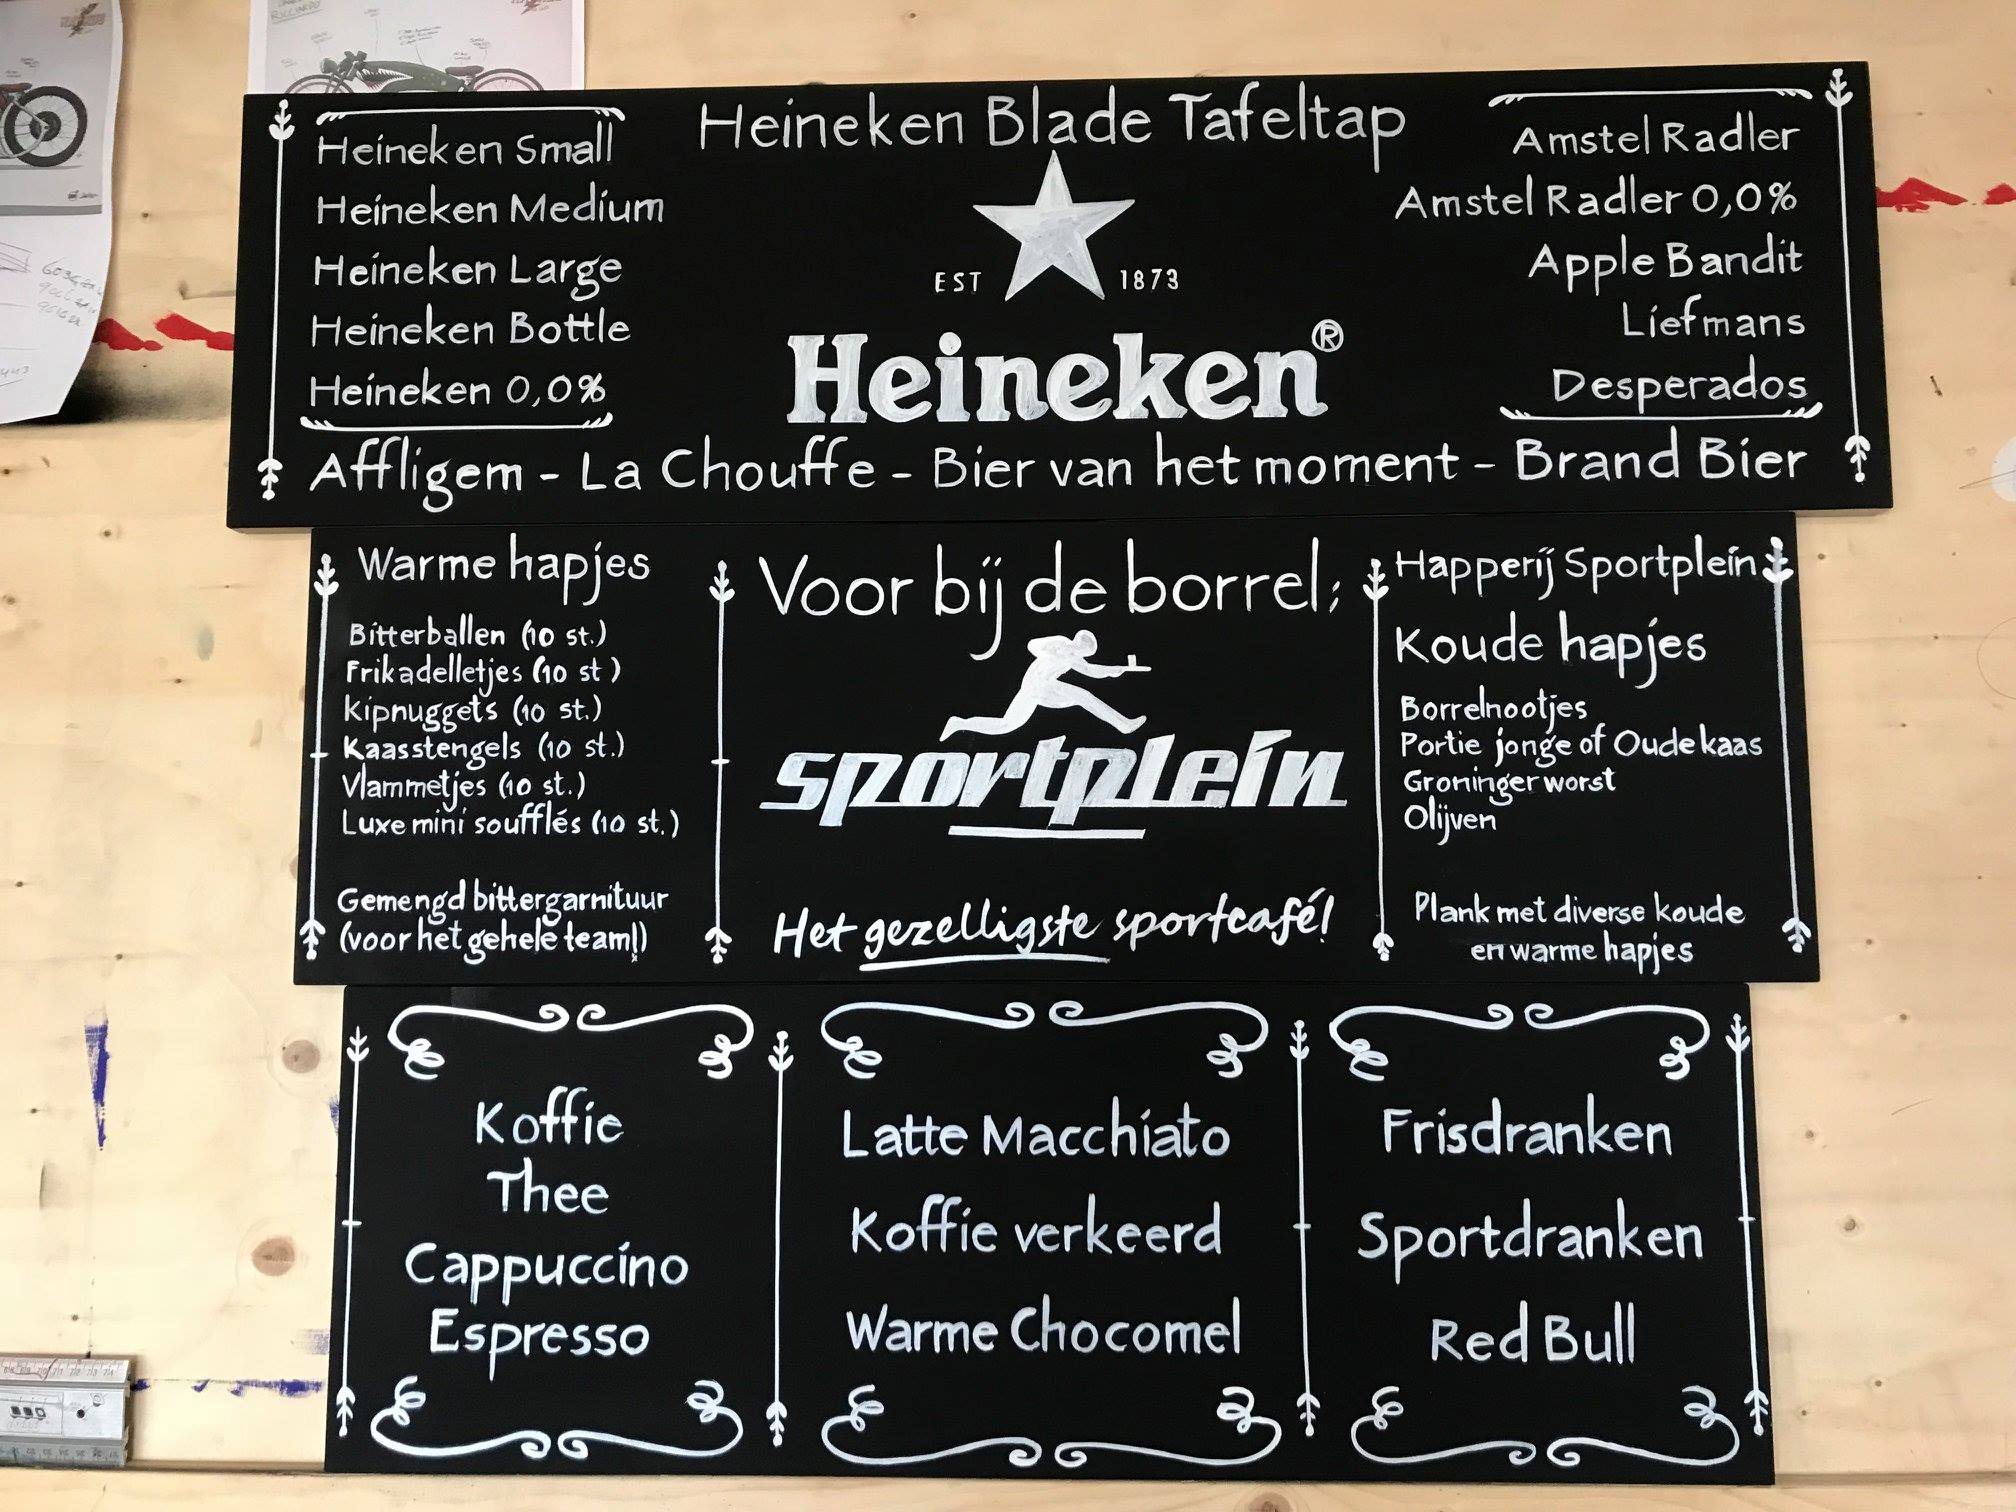 Heineken Blade Tafeltap
Heineken Small
Heineken Medium
Heineken Large
Heineken Bottle
Heineken 0,0%
EST 1873
Heineken®
Amstel Radler
Amstel Radler 0,0%
Apple Bandit
Liefmans
Desperados
Affligem - La Chouffe - Bier van het moment - Brand Bier
Warme hapjes
Bitterballen (10 st.)
Frikadelletjes (10 st)
Kipnuggets (10 st.)
Kaasstengels (10 st.)
Vlammetjes (10 st.)
Luxe mini soufflés (10 st.)
Gemengd bittergarnituur
(voor het gehele team!)
Voor bij de borrel;
sportplein
Het gezelligste sportcafé!
Happerij Sportplein
Koude hapjes
Borrelnootjes
Portie jonge of Oude kaas
Groninger worst
Olijven
Plank met diverse koude
en warme hapjes
Koffie
Thee
Cappuccino
Espresso
Latte Macchiato
Koffie verkeerd
Warme Chocomel
Frisdranken
Sportdranken
Red Bull